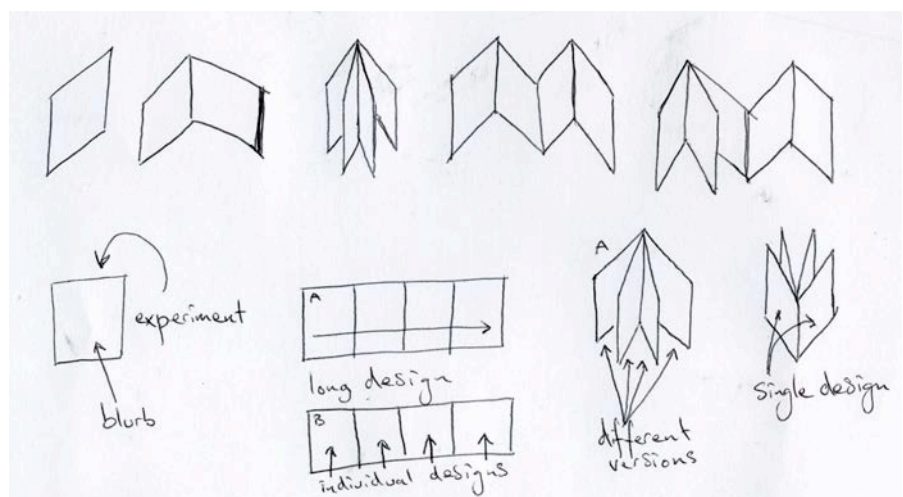 experiment
blurb
A
long design
B
individual designs
A
different
versions
single design